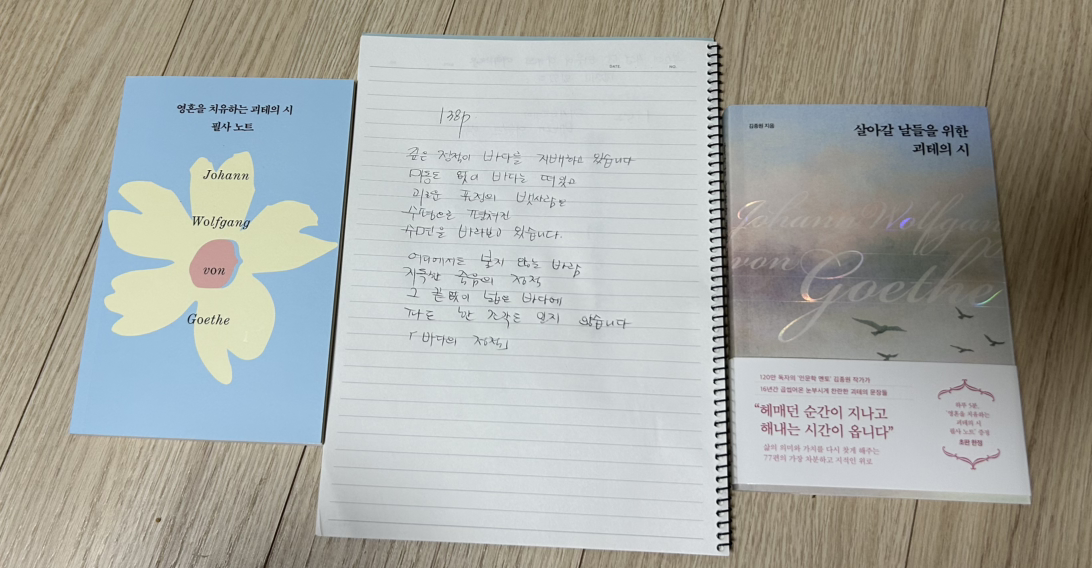 영혼을 치유하는 괴테의 시
필사 노트
Johann
Wolfgang
von
Goethe
DATE
NO.
138p
깊은 정적이 바다를 지배하고 있습니다
미동도 없이 바다는 떠 있고
괴로운 표정의 뱃사람은
수평으로 펼쳐진
수면을 바라보고 있습니다.
어디에서도 불지 않는 바람
지독한 죽음의 정적
그 끝없이 넓은 바다에
파도 한 조각도 일지 않습니다
「바다의 정적」
김종원 지음
살아갈 날들을 위한
괴테의 시
Johann Wolfgang
von
Goethe
120만 독자의 '인문학 멘토' 김종원 작가가
16년간 곱씹어온 눈부시게 찬란한 괴테의 문장들
"헤매던 순간이 지나고
해내는 시간이 옵니다"
삶의 의미와 가치를 다시 찾게 해주는
77편의 가장 차분하고 지적인 위로
하루 5분,
'영혼을 치유하는
괴테의 시
필사 노트' 증정
초판 한정